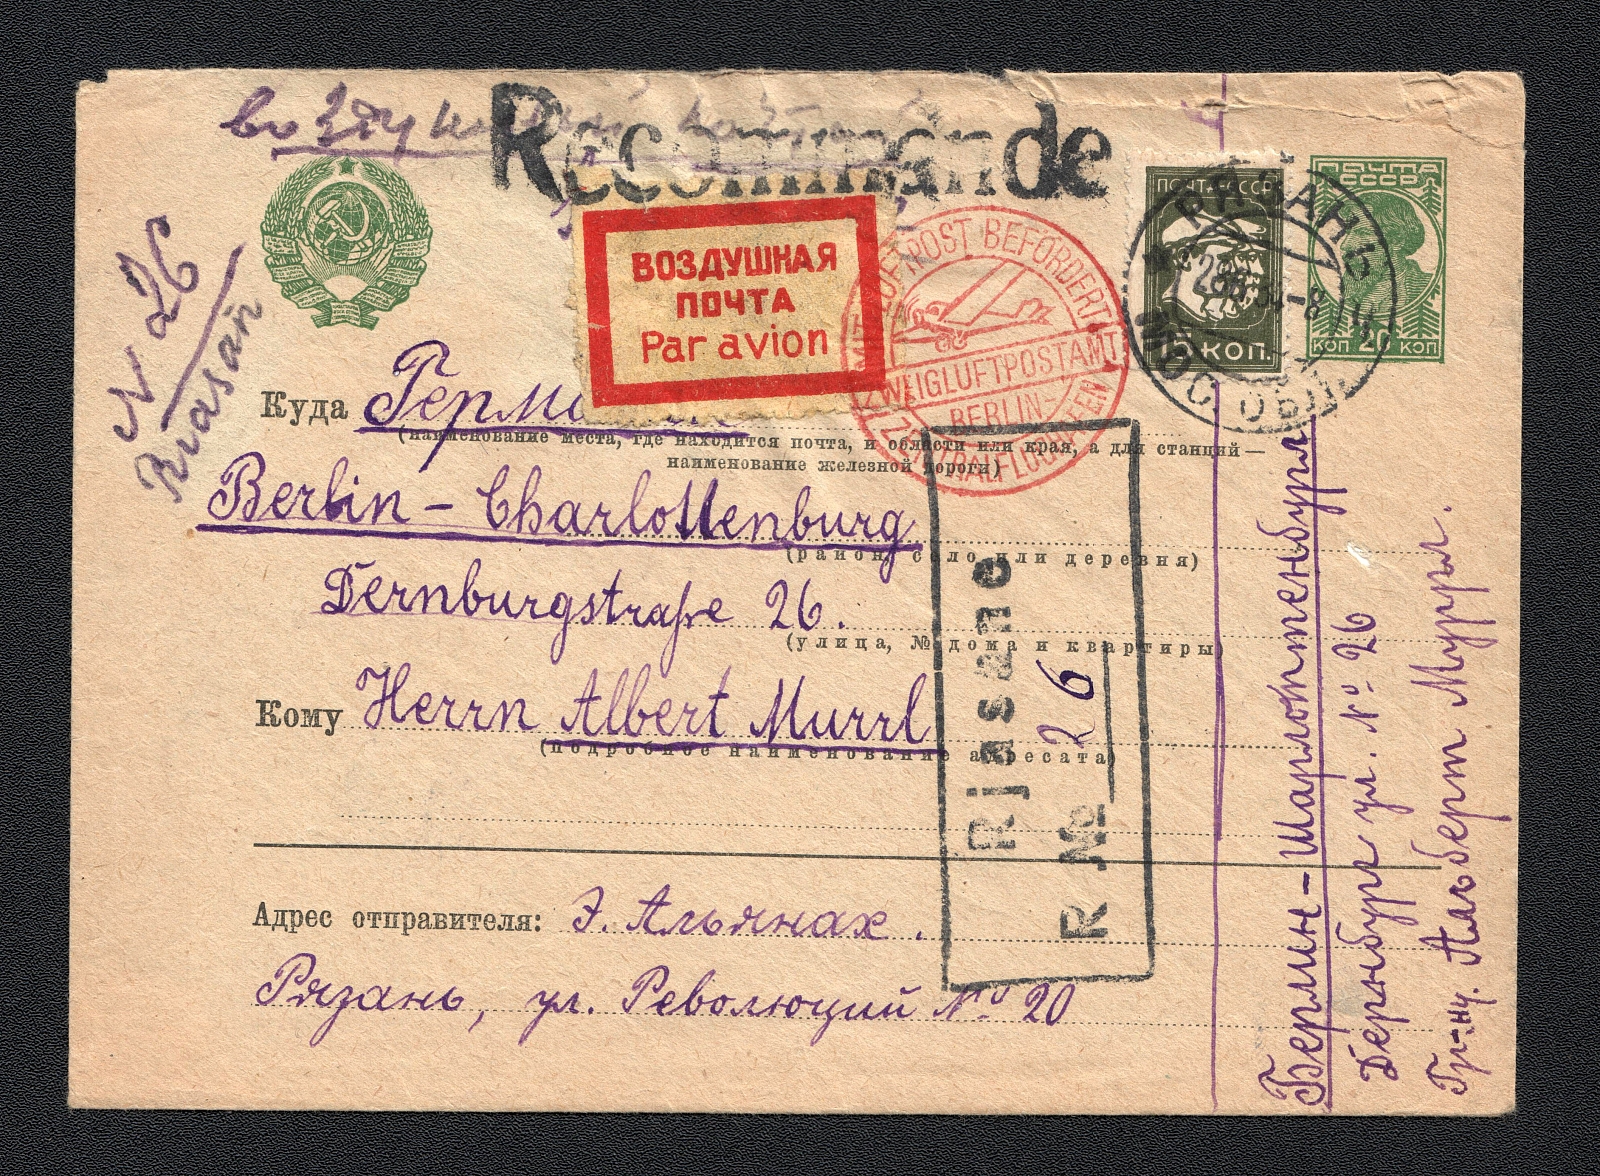 воздушной почтой
Recommande
N 26
Rjasan
ВОЗДУШНАЯ
ПОЧТА
Par avion
MIT LUFTPOST BEFÖRDERT
ZWEIGLUFTPOSTAMT
BERLIN-
ZENTRALFLUGHAFEN
ПОЧТА СССР
15 КОП.
РЯЗАНЬ
МОС. ОБЛ.
ПОЧТА
СССР
КОП 20 КОП
Куда
(наименование места, где находится почта, и области или края, а для станций—
наименование железной дороги)
Berlin - Charlottenburg
(район, село или деревня)
Dernburgstraße 26.
(улица, № дома и квартиры)
Кому Herrn Albert Murrl
(подробное наименование адресата)
Rjasane
R № 26
Адрес отправителя: Э. Альянах.
Рязань, ул. Революций № 20
Берлин-Шарлоттенбург
Дернбург ул. № 26
Гр-ну. Альберт Муррл.